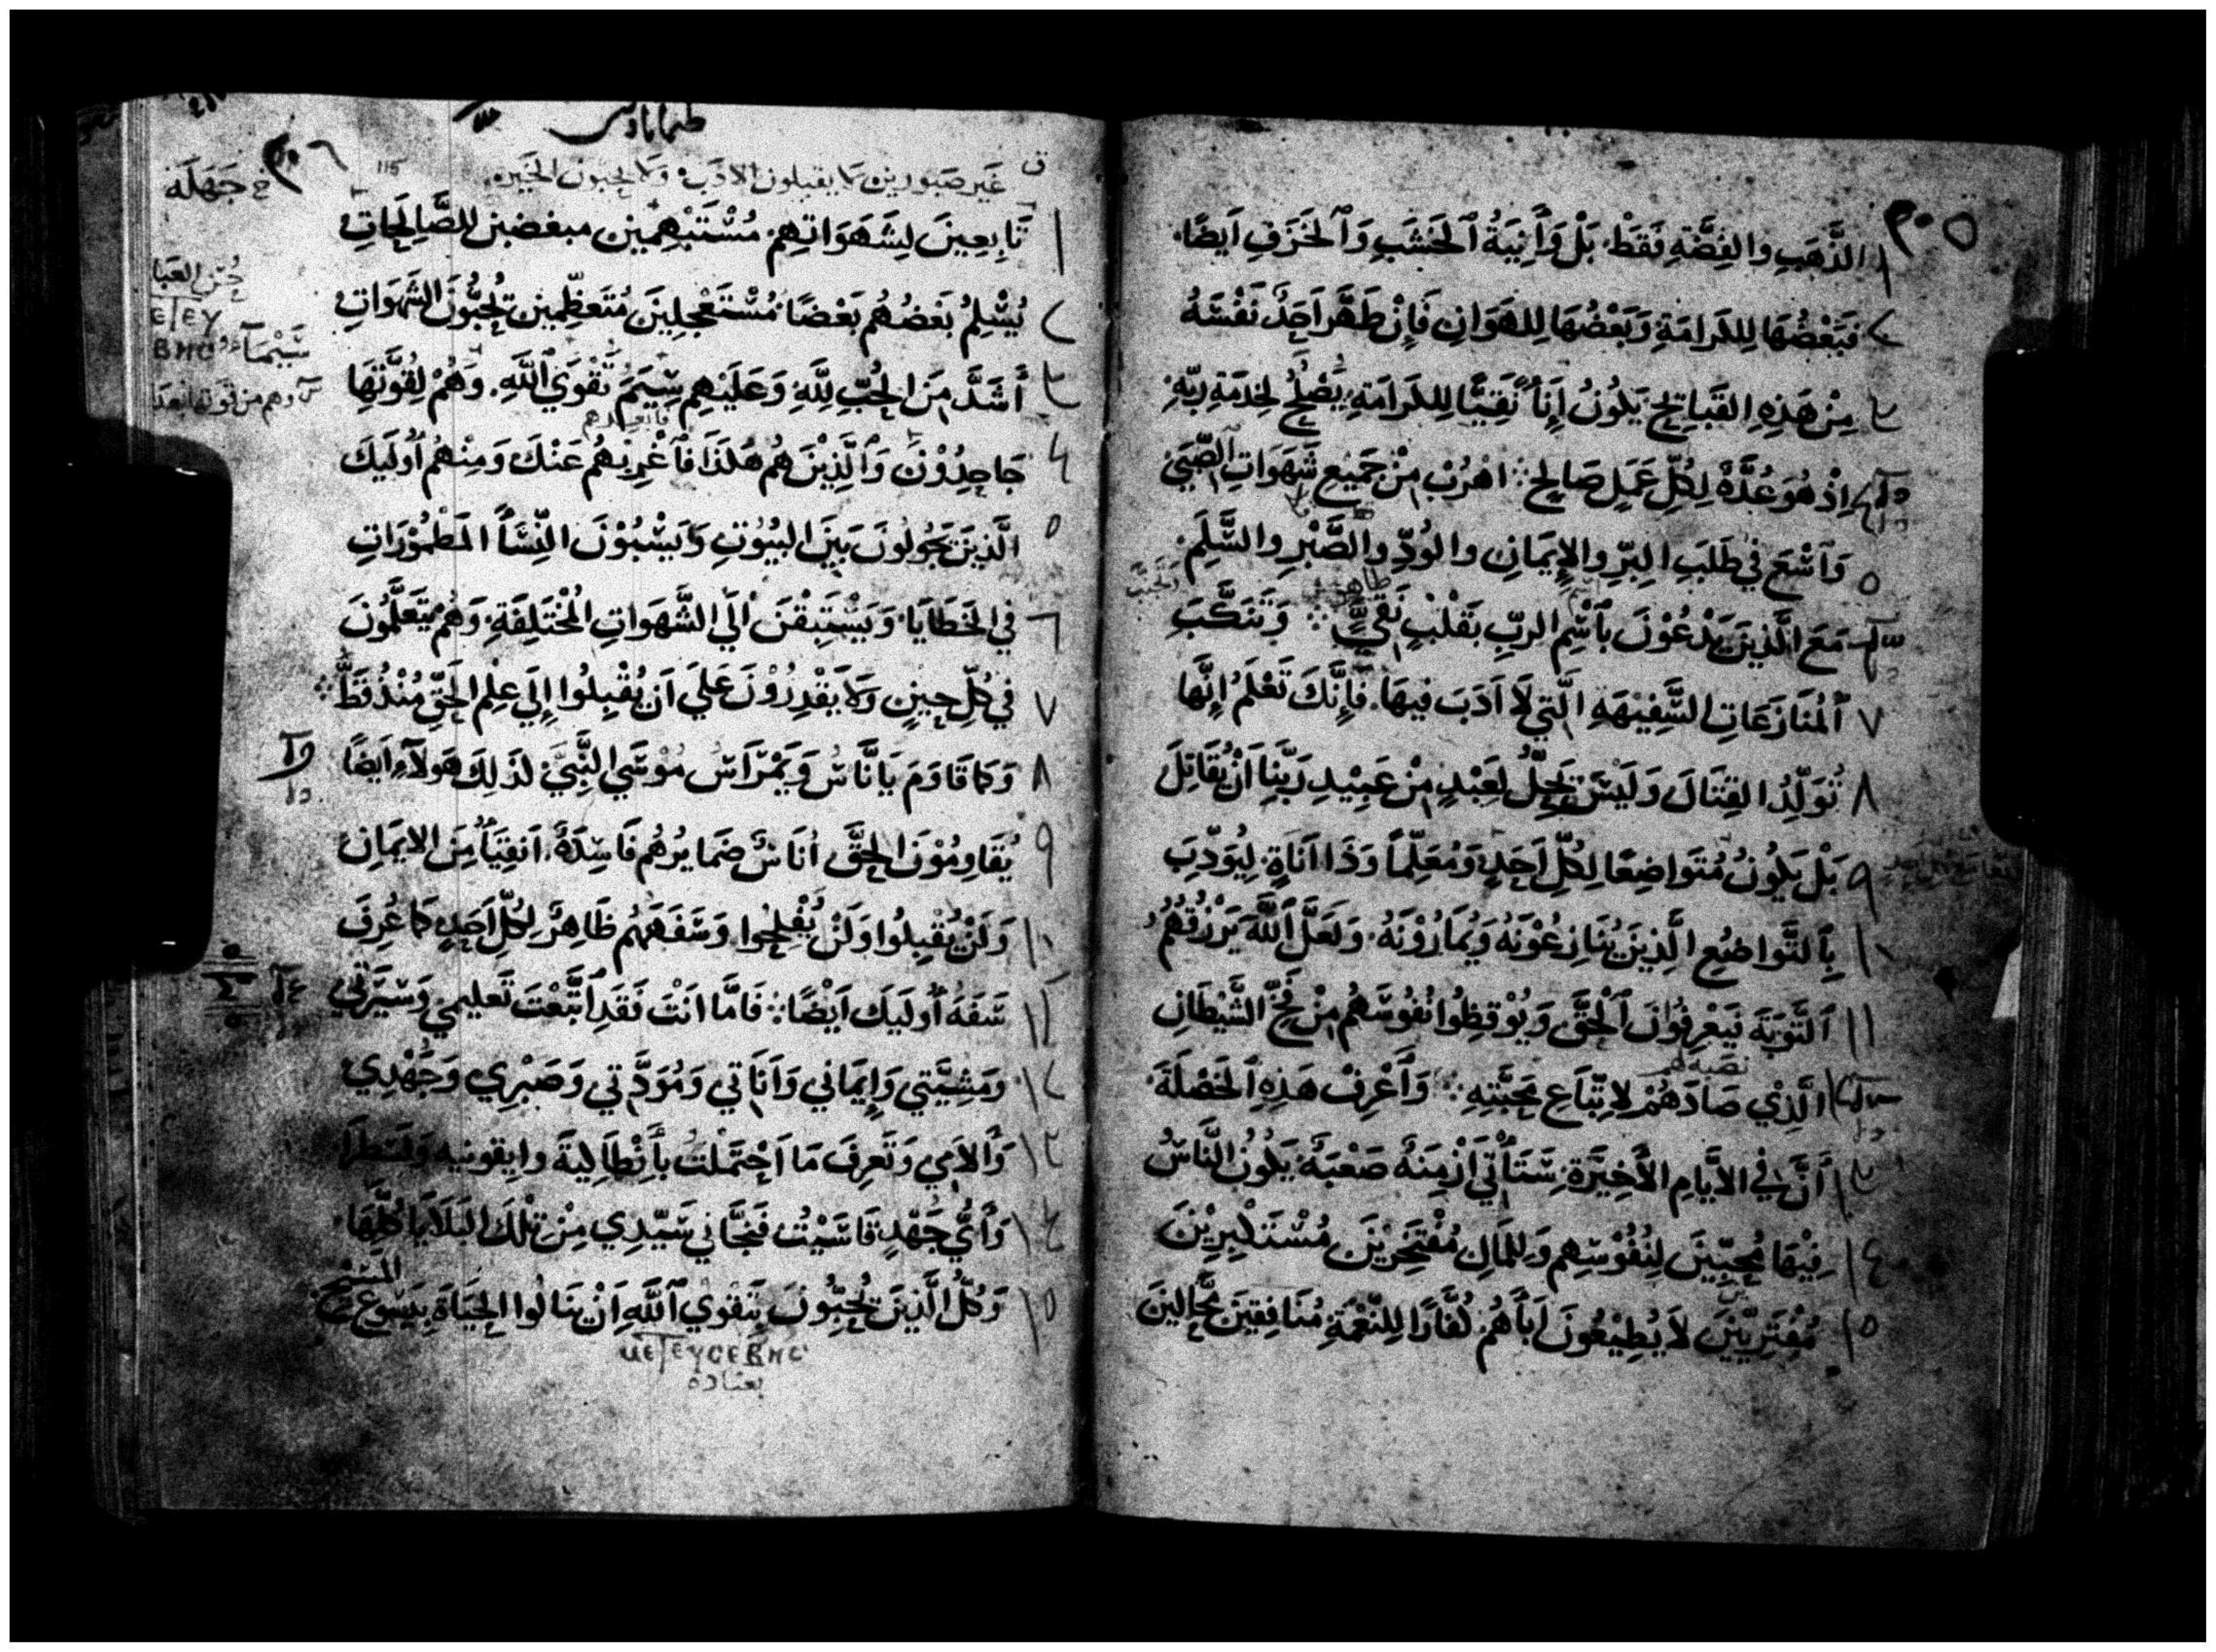 ٣٠٥
١ الذَّهَبِ والفِضَّةِ فَقَطْ بَلْ وَأَنِيَةُ ٱلخَشَبِ وَٱلخَزَفِ اَيضًا
٢ فَبَعْضُهَا لِلكَرامَةِ وَبَعْضُهَا لِلهَوَانِ فَإِنْ طَهَّرَ اَحَدٌ نَفْسَهُ
٣ مِنْ هَذِهِ القَبَايِحِ يَكُونُ إِنَاً نَقِيًّا لِلكَرَامَةِ يَصْلُحُ لِخِدمَةِ رَبِّهِ
٤ اِذْ هُوَ عُدَّةٌ لِكُلِّ عَمَلٍ صَالِحٍ اهْرُبْ مِنْ جَمِيعِ شَهَوَاتِ الصِّبَى
٥ وَٱسْعَ فِي طَلَبِ البِرِّ والإِيمَانِ والوُدِّ والصَّبْرِ والسَّلَمِ
٦ مَعَ الَّذِينَ يَدْعُوْنَ بِٱسْمِ الربِّ بِقَلْبٍ نَقِيٍّ وَتَنَكَّبِ
٧ ٱلمُنَازَعَاتِ السَّفِيْهَةِ الَّتِي لَا اَدَبَ فِيهَا فَإِنَّكَ تَعْلَمُ إِنَّهَا
٨ تُوَلِّدُ القِتَالَ وَلَيْسَ يَحِلُّ لِعَبْدٍ مِنْ عَبِيْدِ رَبِّنِا اَنْ يُقَاتِلَ
٩ بَلْ يَكُونُ مُتَواضِعًا لِكُلِّ اَحَدٍ وَمُعَلِّمًا وَذَا اَنَاةٍ لِيُوَدِّبَ
١٠ بِٱلتَّواضُعِ الَّذِينَ يُنَازِعُوْنَهُ وَيُمَارُوْنَهُ وَلَعَلَّ ٱللَّهَ يَرْزُقُهُمُ
١١ ٱلتَّوبَةَ فَيَعْرِفُوْنَ ٱلحَقَّ وَيُوْقِظُوا نُفُوْسَهُم مِنْ فَخِّ الشَّيْطَانِ
١٢ الَّذِيْ صَادَهُمْ لِاتِّبَاعِ مَحَبَّتِهِ وَأَعْرِفْ هَذِهِ ٱلخَصْلَةَ
١٣ أَنَّ فِي الأَيَّامِ الأَخِيَرةِ سَتَأْتِي اَزْمِنَةٌ صَعْبَةٌ يَكُونُ النَّاسُ
١٤ فِيْهَا مُحِبِّيْنَ لِنُفُوْسِهِم وَلِلمَالِ مُفْتَخِرِيْنَ مُسْتَكْبِرِيْنَ
١٥ مُفْتَرِيِّيْنَ لَا يُطِيْعُونَ اَبَأَهُمْ كُفَّارًا لِلنِّعْمَةِ مُنَافِقِيْنَ مَحَّالِينَ
طيماتاوس
٣٠٦
115
غَير صَبورين لا يقبلون الادَب ولا يحبون الخَيره
خ جَهَلَة
١ تَابِعِينَ لِشَهَوَاتِهِم مُسْتَبْهِمِين مبغضين للصَّالِحَاتِ
٢ يُسْلِمُ بَعْضُهُم بَعْضًا مُسْتَعْجِلِيَنَ مُتَعَظِّمِين يُحِبُّونَ الشَهَوَاتِ
ΕΤΕΥ
ΒΗС
٣ أَشَدَّ مِنَ الحُبِّ لِلَّهِ وَعَلَيْهِم سِيَمُ تَقْوَى ٱللَّهِ وَهُمْ لِقُوَّتِهَا
٤ جَاحِدُوْنَ وَٱلَّذِيْنَ هُم هَكَذَا فَٱغْرِبْهُم عَنْكَ وَمِنْهُم اُولَيِكَ
٥ الَّذِينَ يَجُولُونَ بَيْنَ البُيُوْتِ وَيَسْبُوْنَ النِّسَأَ المَطْمُوْرَاتِ
٦ فِي الخَطَايَا وَيَسْتَبِقْنَ اَلَى الشَّهَوَاتِ المُخْتَلِفَةِ وَهُم يَتَعَلَّمُونَ
٧ فِي كُلِّ حِينٍ وَلا يَقْدِرُوْنَ عَلَى اَن يُقْبِلُوا إِلَى عِلْمِ الحَقِّ مُنْذُ قَطُّ
٨ وَكَما قَاوَمَ يَانَّاسُ وَيَمْرَاسُ مُوْسَى النَّبِيَّ كَذَلِكَ هَولَآءِ اَيضًا
٩ يُقَاوِمُوْنَ الحَقَّ اُنَاسٌ ضَمَايرُهُم فَاسِدَةٌ اَنقِيَأُ مِنَ الايمَانِ
١٠ وَلَنْ يُقْبِلُوا وَلَنْ يُفْلِحُوا وَسَفَهَهُم ظَاهِرٌ لِكُلِّ اَحَدٍ كَما عُرِفَ
١١ سَفَهُ اُولَيِكَ اَيْضًا فَامَّا اَنْتَ فَقَدِ ٱتَّبَعْتَ تَعليمي وَسيَرتِي
١٢ ومَشِيَّتِي وَإِيمَاني وَاَنَاتي وَمُوَدَّتي وَصَبْرِي وَجُهْدِي
١٣ وَآلامِي وَتَعرِفَ مَا اَحْتَمَلتُ بأَنْطَالِيةَ وايقونيه وَلسَطَرَا
١٤ وَأَيُّ جَهْدٍ قَاسَيْتُ فَنَجَّاني سَيّدِي مِنْ تِلْكَ البَلَايَا كُلِّهَا
١٥ وَكُلُّ الَّذِينَ يُحِبُّونَ بتَقوَى ٱللَّهِ اَنْ يَنَالُوا الحَيَاةَ بِيَسُوع المَسِيح
بعباده